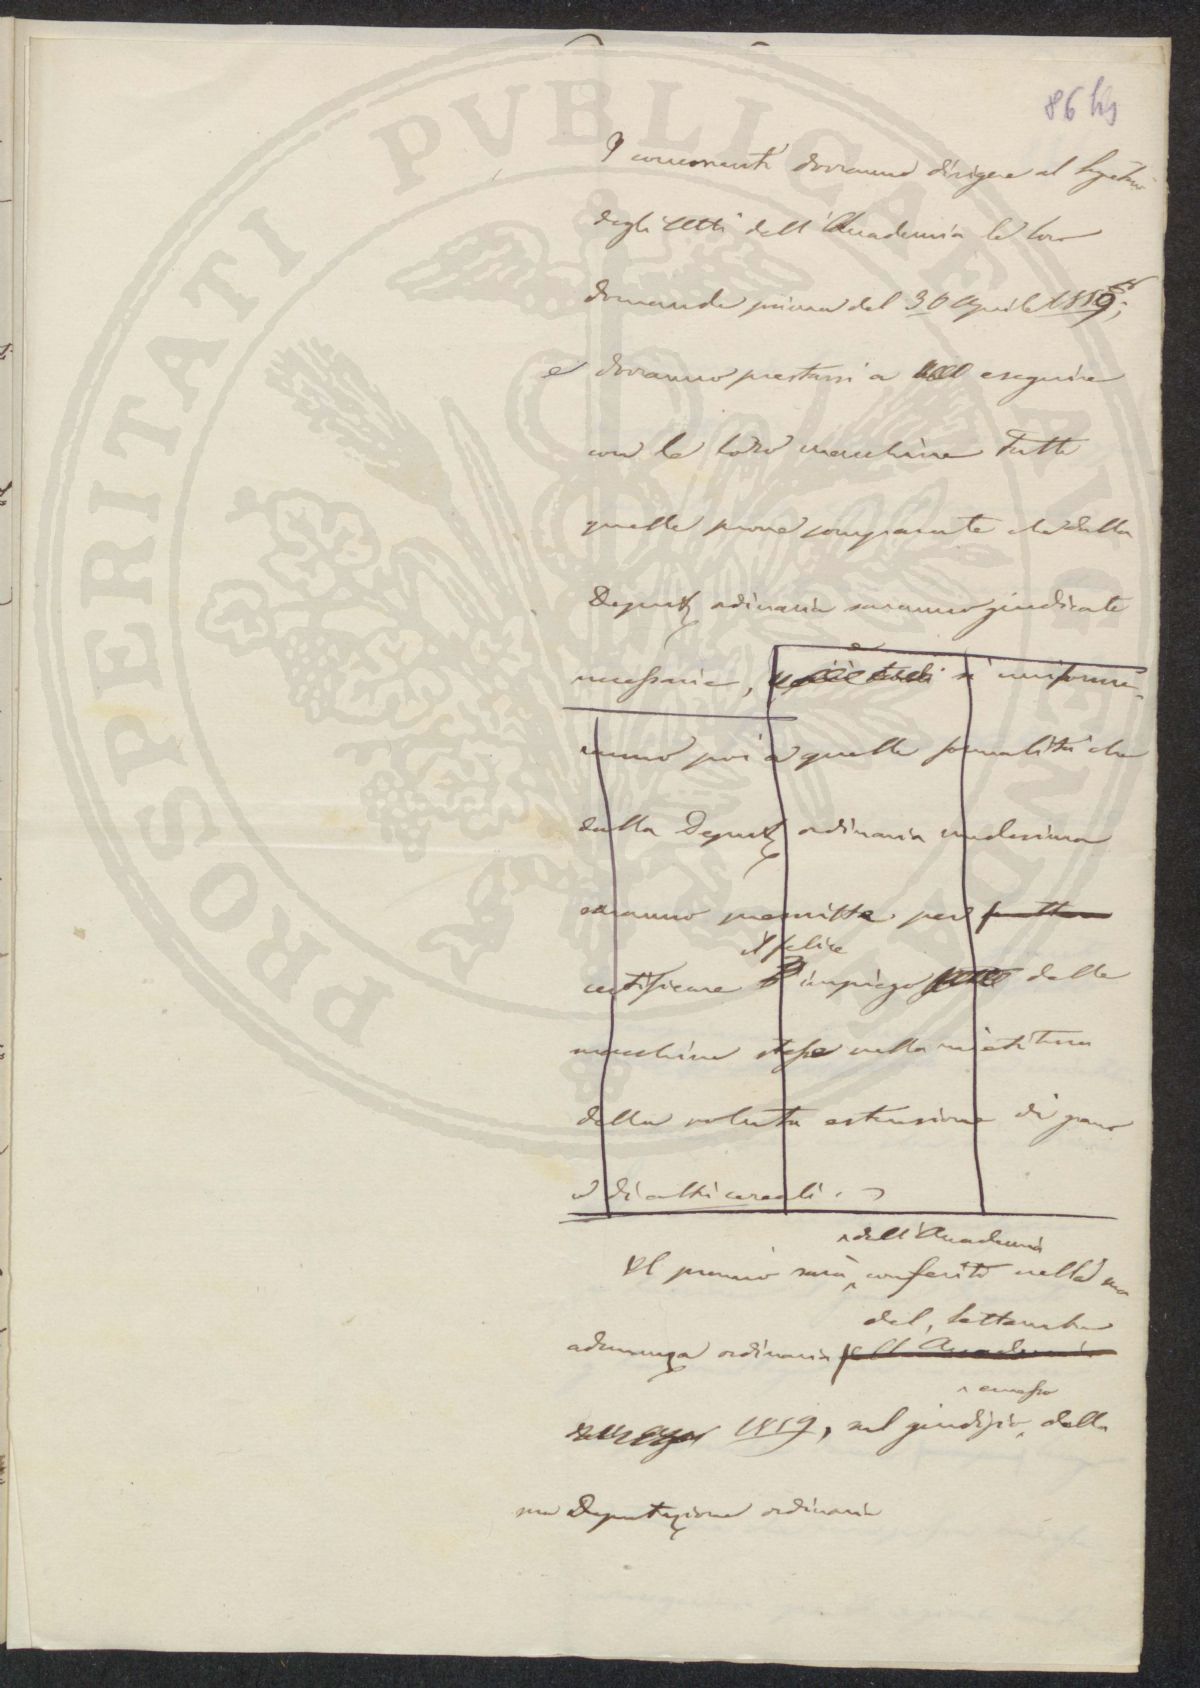 86 bis
I concorrenti dovranno dirigere al Segretario
degli Atti dell'Accademia le loro
domande prima del 30 Aprile 1859;
e dovranno prestarsi a eseguire
con le loro macchine tutte
quelle prove comparate che dalla
Deputaz ordinaria saranno giudicate
necessarie, e si uniforme-
ranno poi a quelle formalità che
dalla Deputaz ordinaria medesima
saranno prescritte per
il felice
certificare l'impiego delle
macchine stesse nella mietitura
della voluta estensione di grano
o di altri cereali.
dell'Accademia
Il premio sarà conferito nella sua
del Settembre
adunanza ordinaria dell'Accademia
emesso
1859, sul giudizio della
sua Deputazione ordinaria
PROSPERITATI PVBLICAE AVGENDAE